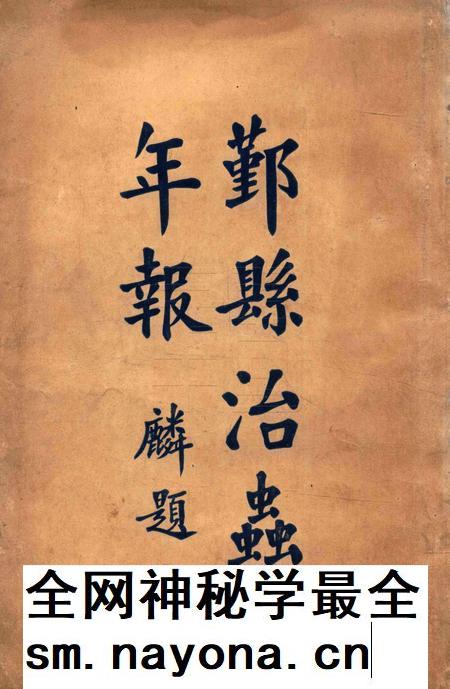 鄞縣治蟲
年報
麟題
全网神秘学最全
sm.nayona.cn